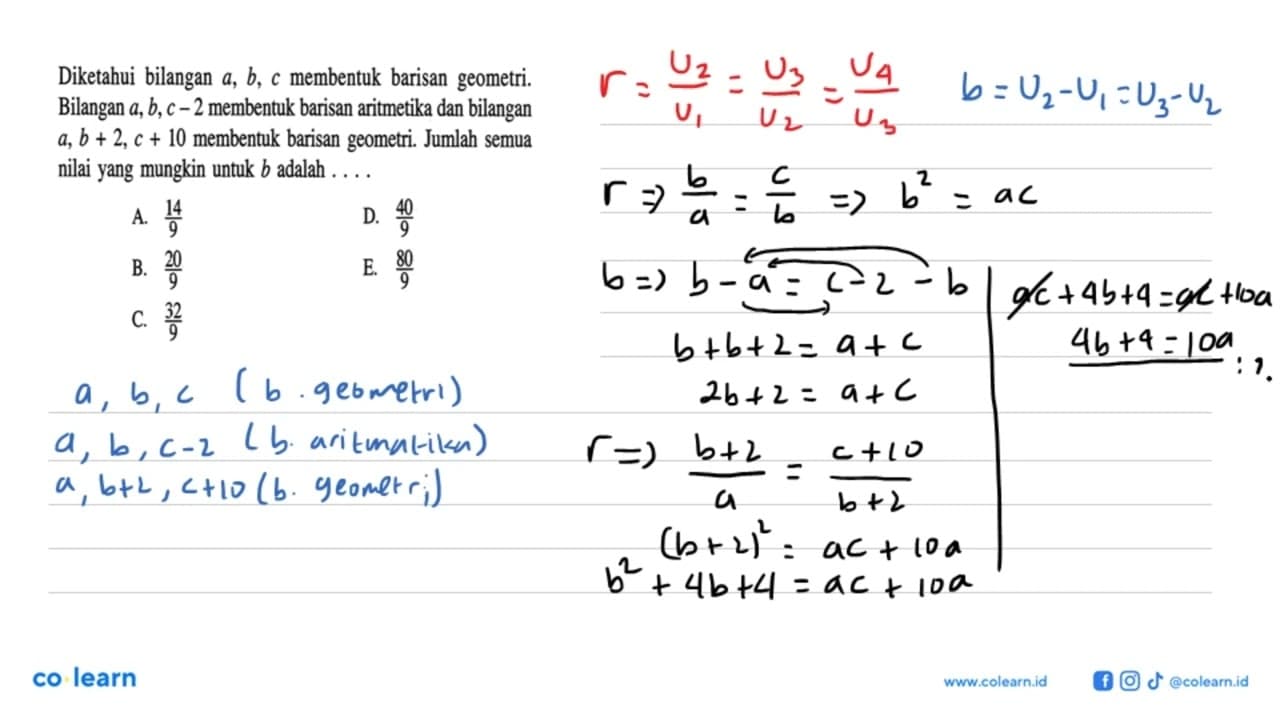 Diketahui bilangan a, b, c membentuk barisan geometri.
Bilangan a, b, c – 2 membentuk barisan aritmetika dan bilangan
a, b + 2, c + 10 membentuk barisan geometri. Jumlah semua
nilai yang mungkin untuk b adalah . . . .
A. 14/9
B. 20/9
C. 32/9
D. 40/9
E. 80/9
a, b, c (b. geometri)
a, b, c-2 (b. aritmatika)
a, b+2, c+10 (b. geometri)
r = U2/U1 = U3/U2 = U4/U3
b = U2-U1 = U3-U2
r => b/a = c/b => b² = ac
b => b - a = c - 2 - b
b+b+2 = a+c
2b+2 = a+c
r => (b+2)/a = (c+10)/(b+2)
(b+2)² = ac + 10a
b² + 4b+4 = ac + 10a
ac+4b+4=ac+10a
4b+4=10a
:2.
co learn
www.colearn.id
@colearn.id